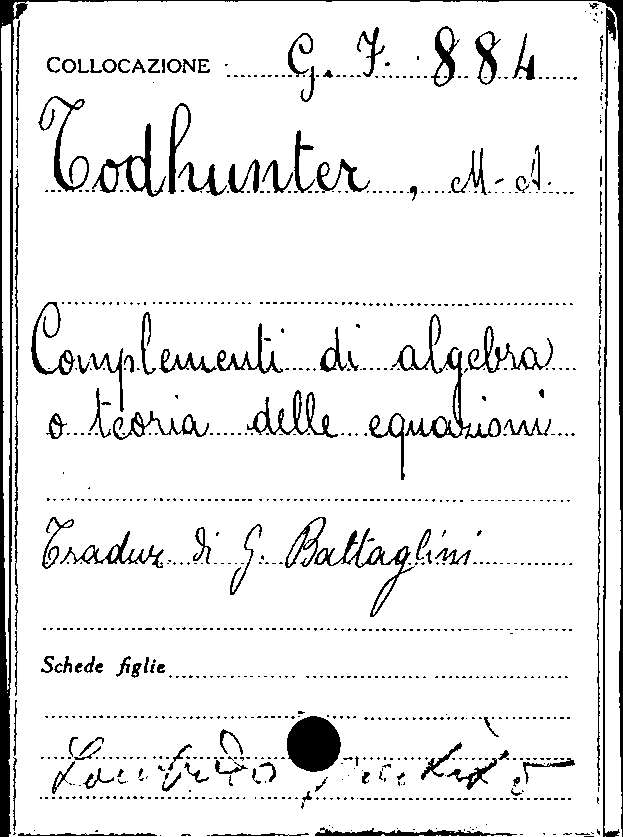 COLLOCAZIONE G. F. 884
Todhunter, M-A.
Complementi di algebra
o teoria delle equazioni
Traduz. di G. Battaglini
Schede figlie